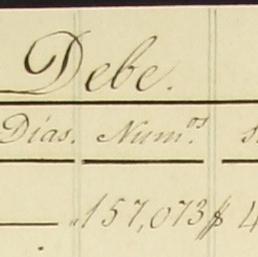 Debe.
Días. Num.os s.
157,073 $ 4